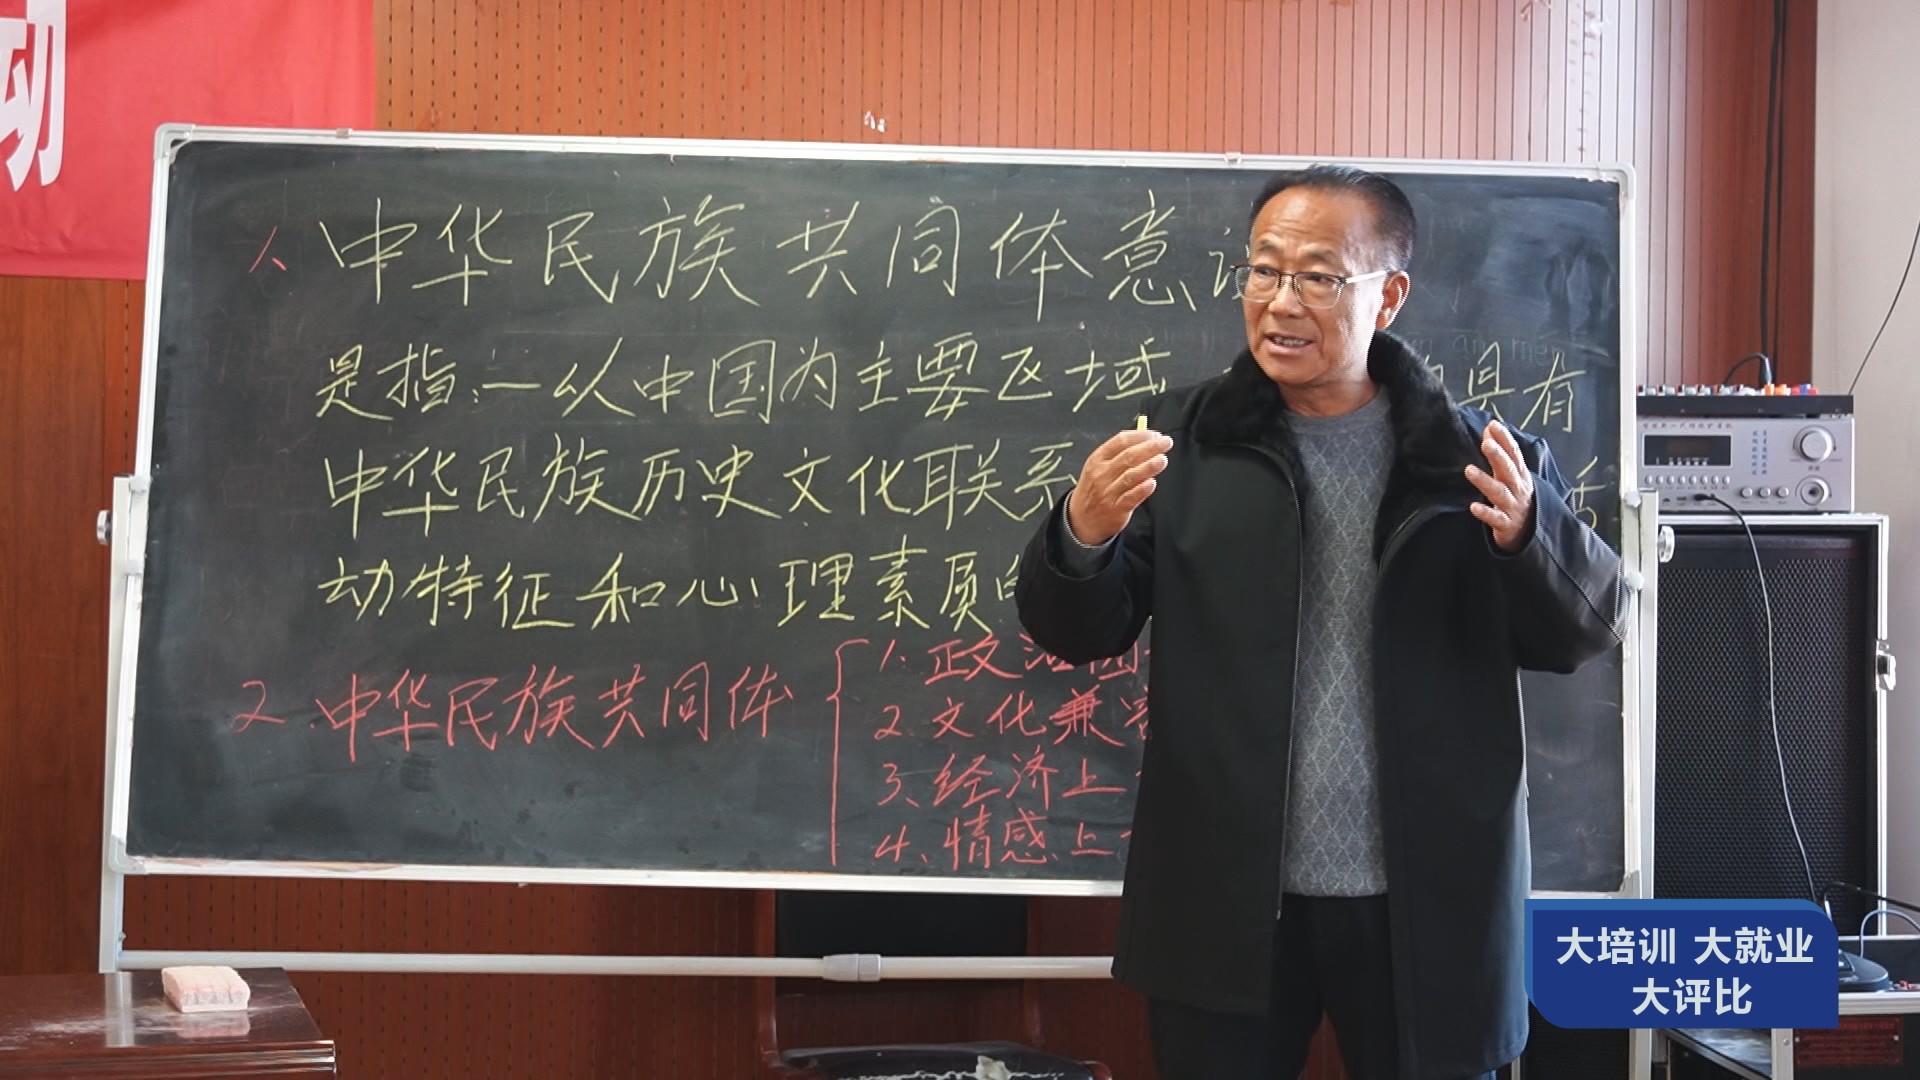 动
1、中华民族共同体意识
是指:一以中国为主要区域 具有
中华民族历史文化联系 活
动特征和心理素质的
2.中华民族共同体
1.政治团
2.文化兼容
3、经济上
4、情感上
大培训 大就业
大评比